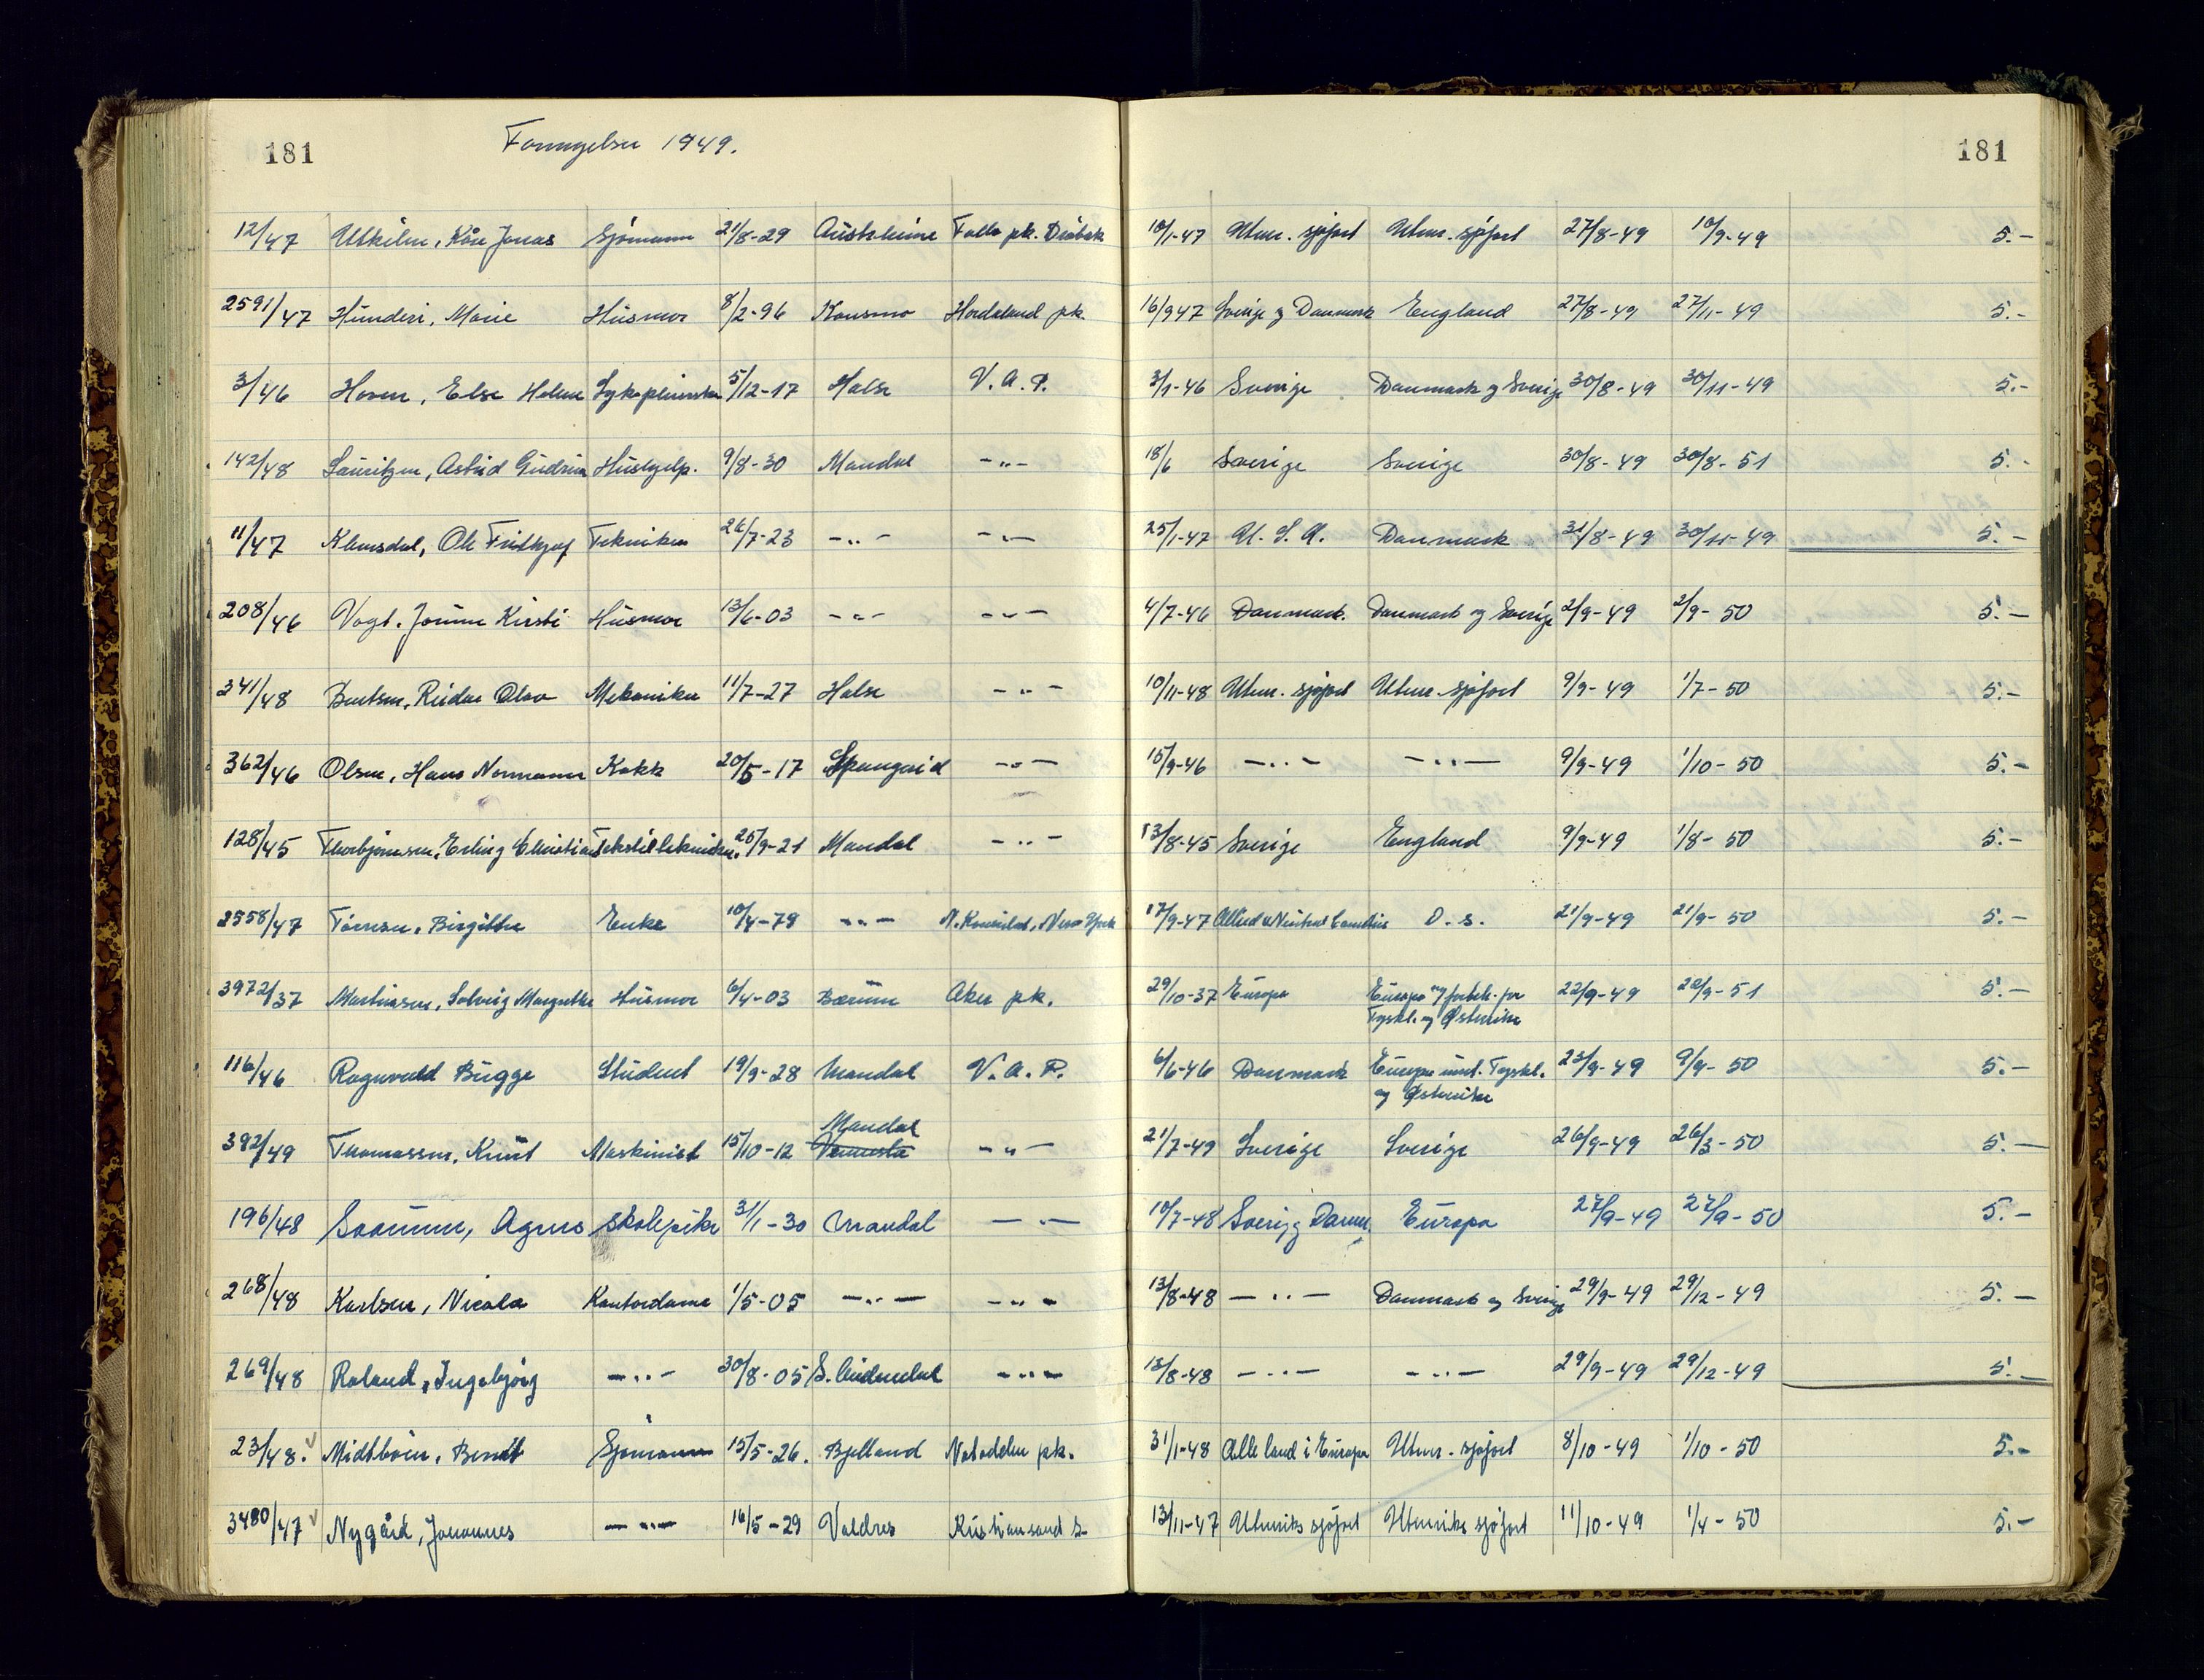 181 Fornyelser 1949. 181
12/47 Utkilen, Kåre Jonas Sjømann 21/8-29 Austrheim Follo pk. Drøbak 10/1-47 Utenr. sjøfart Utenr. sjøfart 27/8-49 10/9-49 5.-
2591/47 Hunderi, Marie Husmor 8/2-96 Konsmo Hordaland pk. 16/9 47 Sverige og Danmark England 27/8-49 27/11-49 5.-
3/46 Hoven, Else Helene Sykepleierske 5/12-17 Halse V.A.P. 3/1-46 Sverige Danmark og Sverige 30/8-49 30/11-49 5.-
142/48 Lauritzen, Astrid Gudrun Hushjelp. 9/8-30 Mandal -"- 18/6 Sverige Sverige 30/8-49 30/8-51 5.-
11/47 Klemsdal, Ole Fridtjof Tekniker 26/7-23 -"- -"- 25/1-47 U.S.A. Danmark 31/8-49 30/11-49 5.-
208/46 Vogt, Jorunn Kirsti Husmor 13/6-03 -"- -"- 4/7-46 Danmark. Danmark og Sverige 2/9-49 2/9-50 5.-
341/48 Bentsen, Reidar Olav Mekaniker 11/7-27 Halse -"- 10/11-48 Utenr. sjøfart Utenr. sjøfart 9/9-49 1/7-50 5.-
362/46 Olsen, Hans Normann Kokk 20/5-17 Spangreid -"- 15/9-46 -"- -"- 9/9-49 1/10-50 5.-
128/45 Thorbjørnsen, Erling Christian Tekstiltekniker. 25/9-21 Mandal -"- 13/8-45 Sverige England 9/9-49 1/8-50 5.-
2558/47 Tørresen, Birgitthe Enke 10/4-79 -"- N. Konsulat, New York 17/9-47 Allied & Neutral Countries D.s. 21/9-49 21/9-50 5.-
3972/37 Martinsen, Solveig Margrethe Husmor 6/4-03 Bærum Aker pk. 29/10-37 Europa Europa og forbeh. for 22/9-49 22/9-51 5.-
Tyskl. og Østerrike
116/46 Ragnvald Bugge Student 19/9-28 Mandal V.A.P. 6/6-46 Danmark Europa unnt. Tyskl. 23/9-49 9/9-50 5.-
og Østerrike
Mandal
392/49 Thomassen, Knut Maskinist 15/10-12 Vennesla -"- 21/7-49 Sverige Sverige 26/9-49 26/3-50 5.-
196/48 Agnes skolepike 31/1-30 Mandal -"- 10/7-48 Sverig og Danm. Europa 27/9-49 27/9-50 5.-
268/48 Karlsen, Nicola Kontordame 1/5-05 -"- -"- 13/8-48 -"- Danmark og Sverige 29/9-49 29/12-49 5.-
269/48 Roland, Ingebjørg -"- 30/8-05 S. Audnedal -"- 13/8-48 -"- -"- 29/9-49 29/12-49 5.-
23/48. Midtbøen, Bendt Sjømann 15/5-26. Bjelland Notodden pk. 31/1-48 Alle land i Europa Utenr. sjøfart 8/10-49 1/10-50 5.-
3480/47 Nygård, Johannes -"- 16/5-29 Valdres Kristiansand S. 13/11-47 Utenriks sjøfart Utenriks sjøfart 11/10-49 1/4-50 5.-